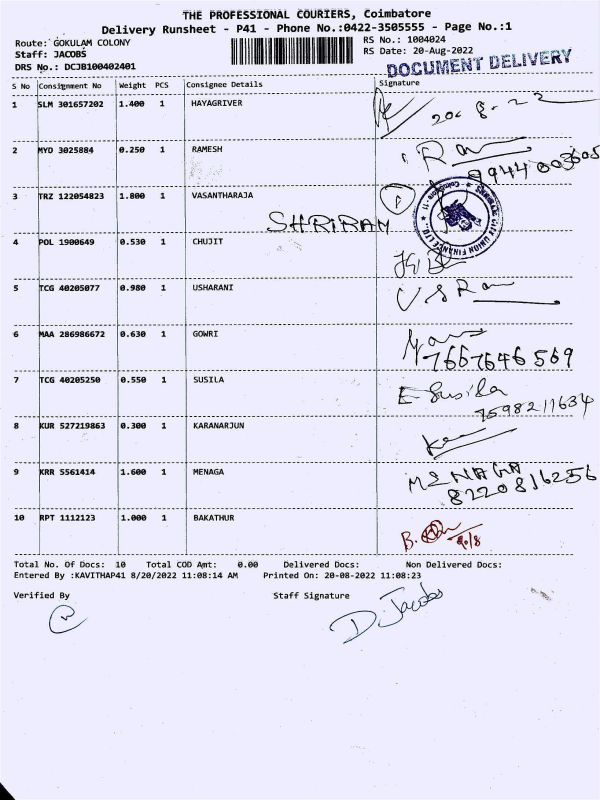 THE PROFESSIONAL COURIERS, Coimbatore
Delivery Runsheet - P41 - Phone No.:0422-3505555 - Page No.:1
Route: GOKULAM COLONY
RS No.: 1004024
Staff: JACOBS
RS Date: 20-Aug-2022
DRS No.: DCJB100402401
DOCUMENT DELIVERY
S No Consignment No Weight PCS Consignee Details Signature
1 SLM 301657202 1.400 1 HAYAGRIVER
20.8.22
2 MYD 3025884 0.250 1 RAMESH
9944003605
3 TRZ 122054823 1.800 1 VASANTHARAJA
SHRIRAM
4 POL 1900649 0.530 1 CHUJIT
5 TCG 40205077 0.980 1 USHARANI
6 MAA 286986672 0.630 1 GOWRI
7667646569
7 TCG 40205250 0.550 1 SUSILA
E Susila
7598211634
8 KUR 527219863 0.300 1 KARANARJUN
9 KRR 5561414 1.600 1 MENAGA
MENAGA
8220816256
10 RPT 1112123 1.000 1 BAKATHUR
Total No. Of Docs: 10 Total COD Amt: 0.00 Delivered Docs: Non Delivered Docs:
Entered By :KAVITHAP41 8/20/2022 11:08:14 AM Printed On: 20-08-2022 11:08:23
Verified By Staff Signature
D. Jacobs